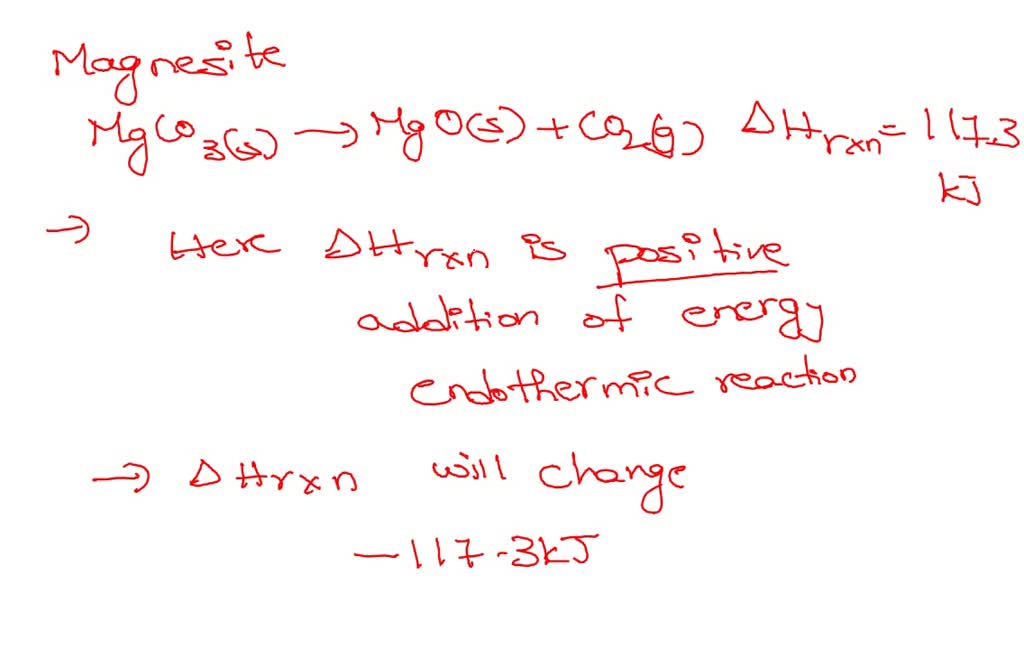 Magnesite
MgCO3(s) → MgO(s) + CO2(g) ΔHrxn = 117.3
kJ
→ Here ΔHrxn is positive
addition of energy
endothermic reaction
→ ΔHrxn will change
-117.3kJ